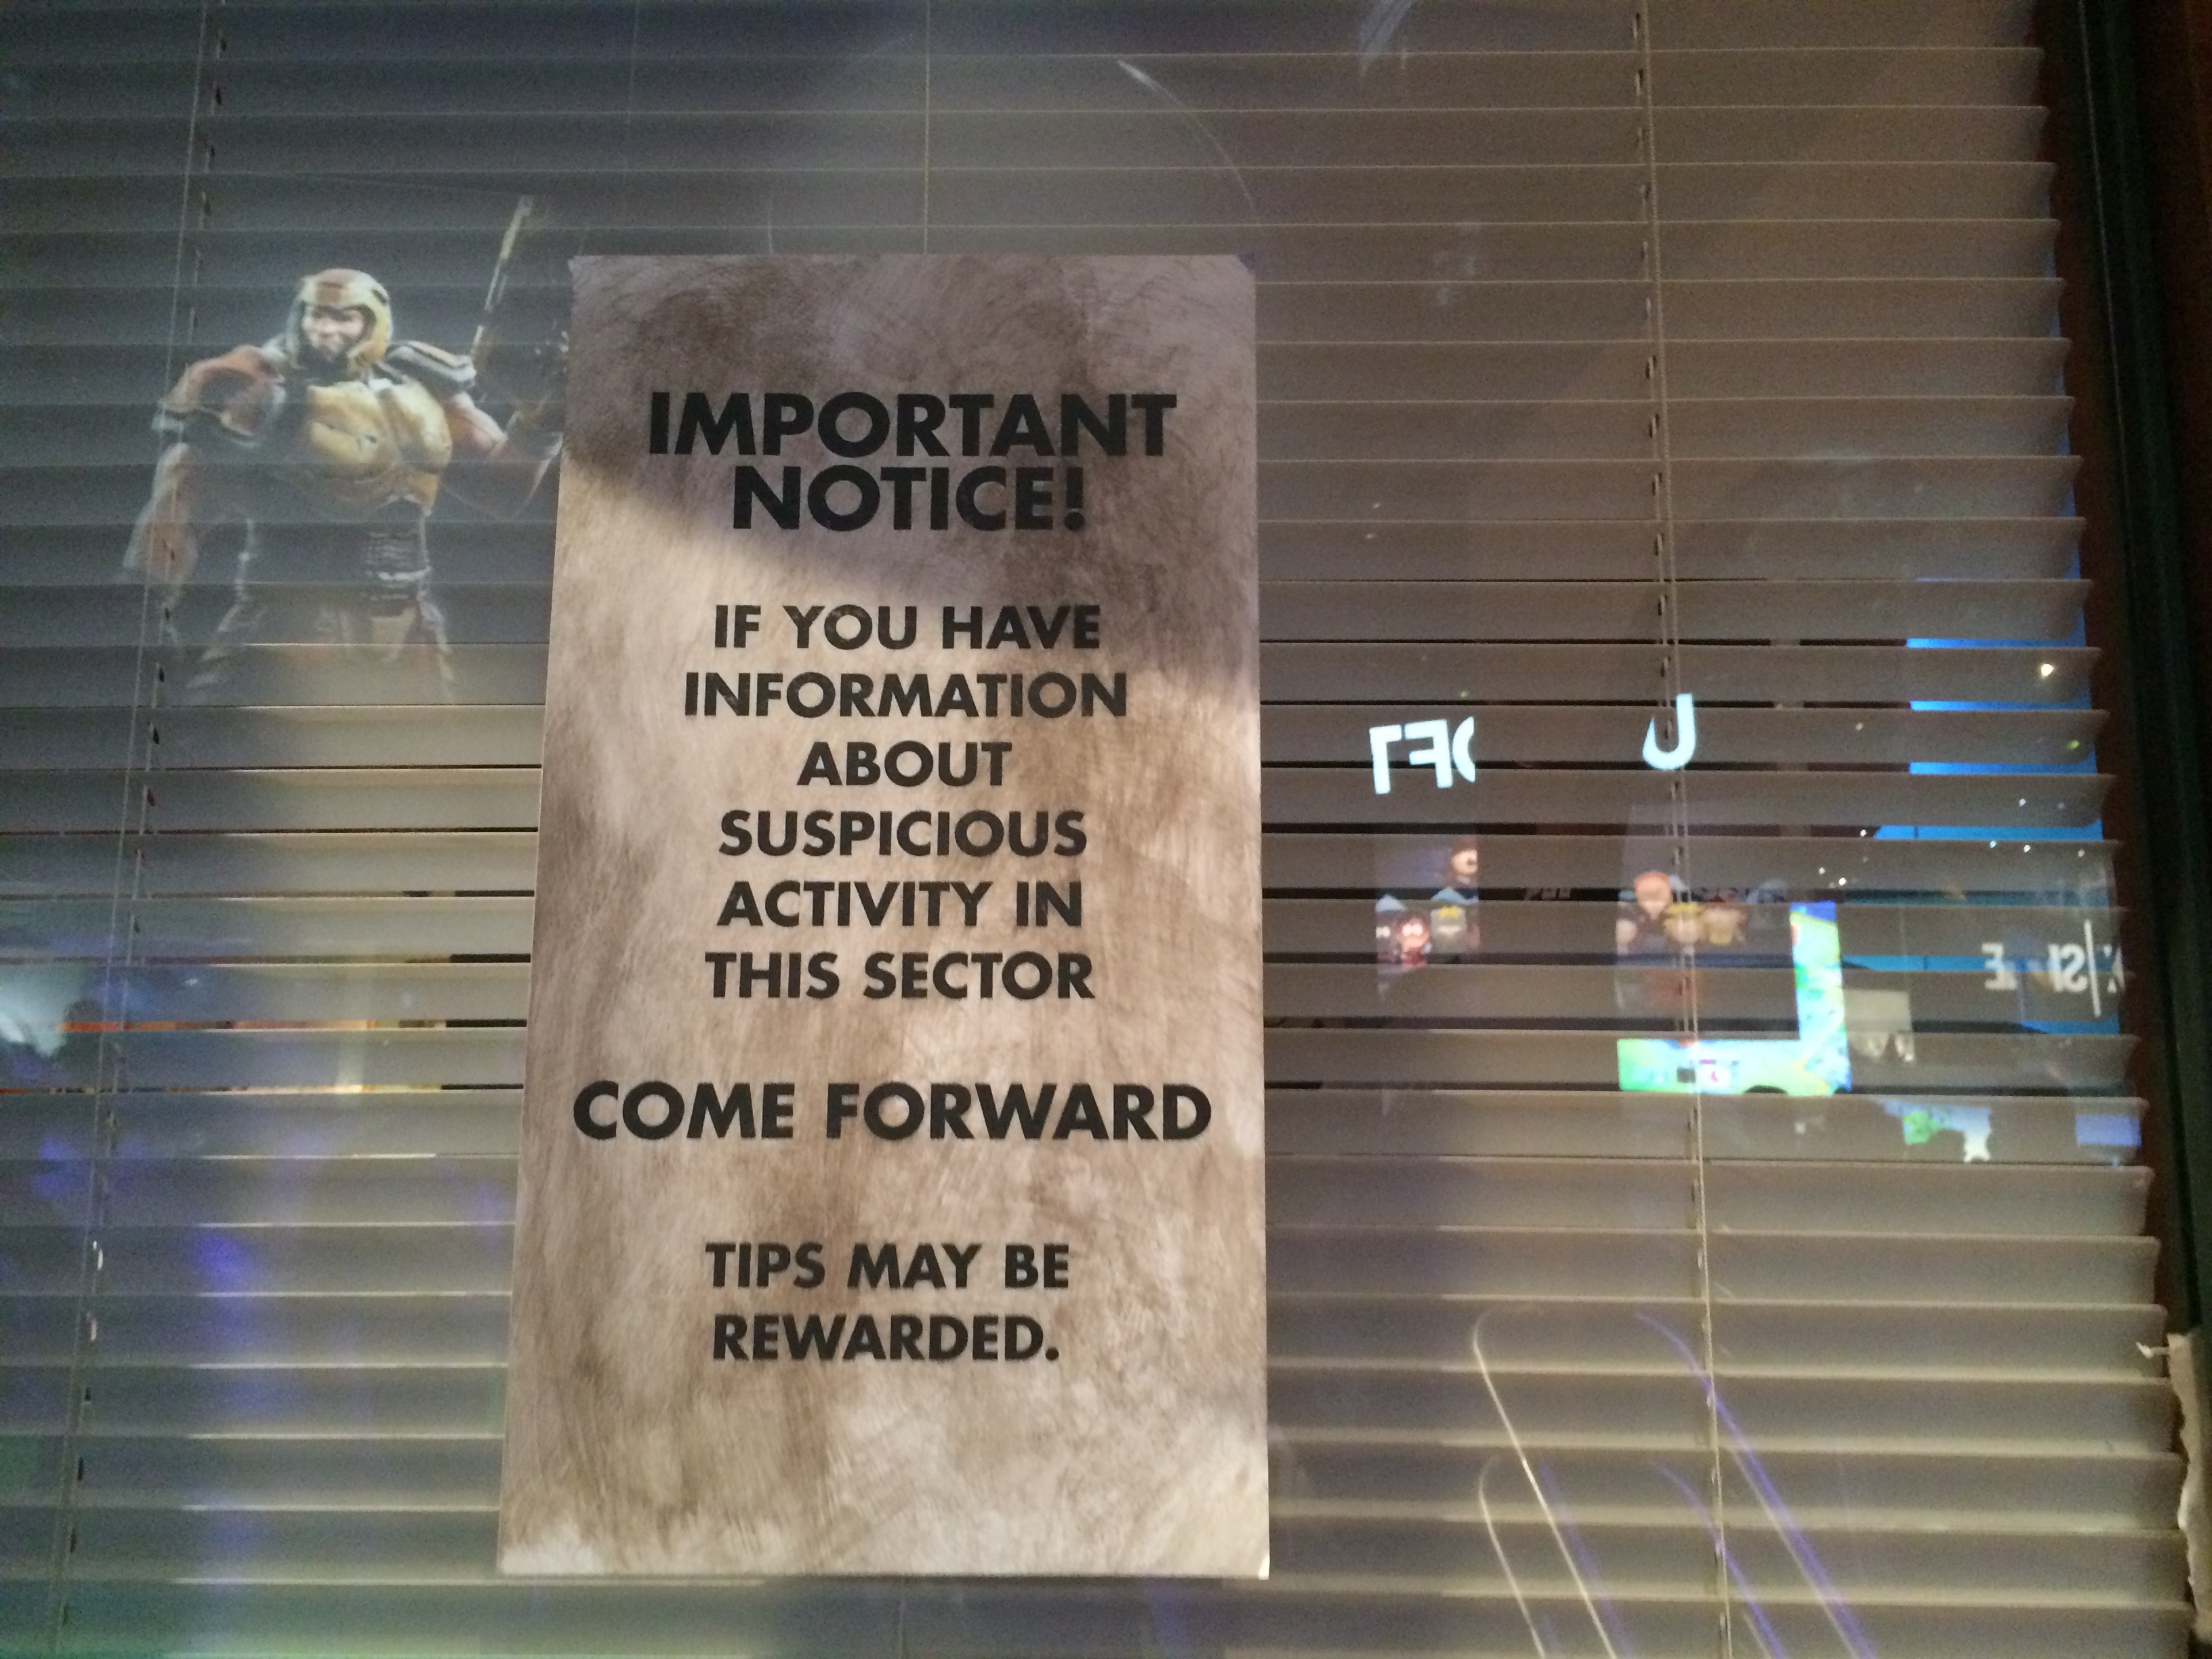 IMPORTANT
NOTICE!
IF YOU HAVE
INFORMATION
ABOUT
SUSPICIOUS
ACTIVITY IN
THIS SECTOR
COME FORWARD
TIPS MAY BE
REWARDED.